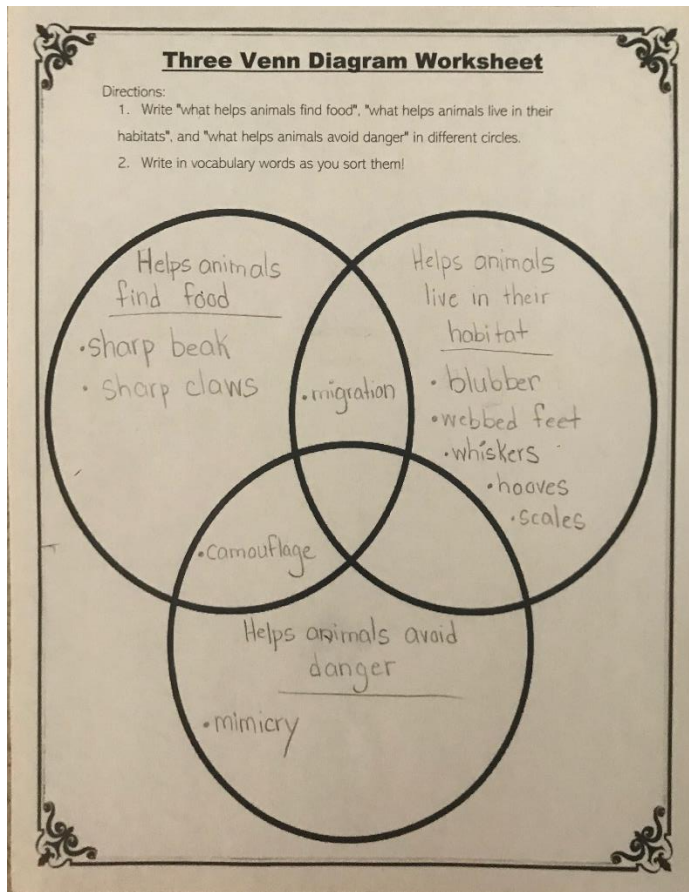 Three Venn Diagram Worksheet
Directions:
1. Write "what helps animals find food", "what helps animals live in their
habitats", and "what helps animals avoid danger" in different circles.
2. Write in vocabulary words as you sort them!
Helps animals
find food
•sharp beak
• sharp claws
•migration
Helps animals
live in their
habitat
• blubber
•webbed feet
•whiskers
•hooves
•scales
•camouflage
Helps animals avoid
danger
•mimicry